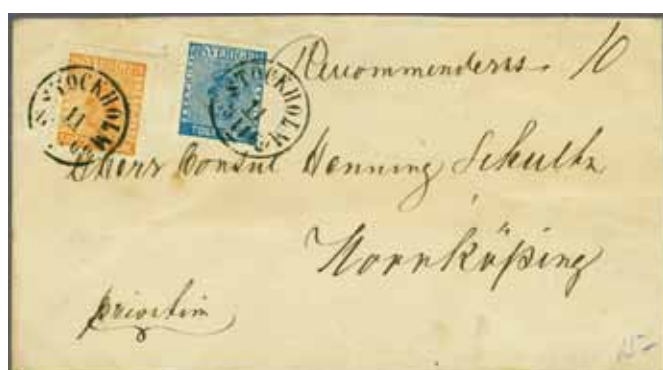 SVERIGE
STOCKHOLM
11
STOCKHOLM
11
Recommenderas. 10
Herr Consul Henning Schultz
Norrköping
privatim